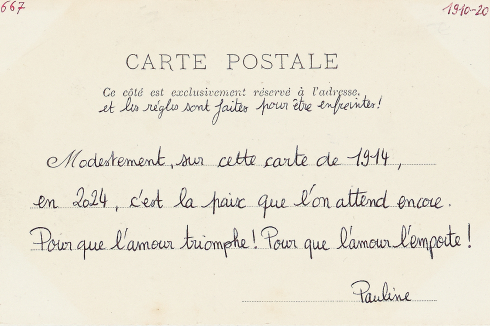 667
1910-20
CARTE POSTALE
Ce côté est exclusivement réservé à l'adresse.
et les règles sont faites pour être enfreintes!
Modestement, sur cette carte de 1914,
en 2024, c'est la paix que l'on attend encore.
Pour que l'amour triomphe! Pour que l'amour l'emporte!
Pauline